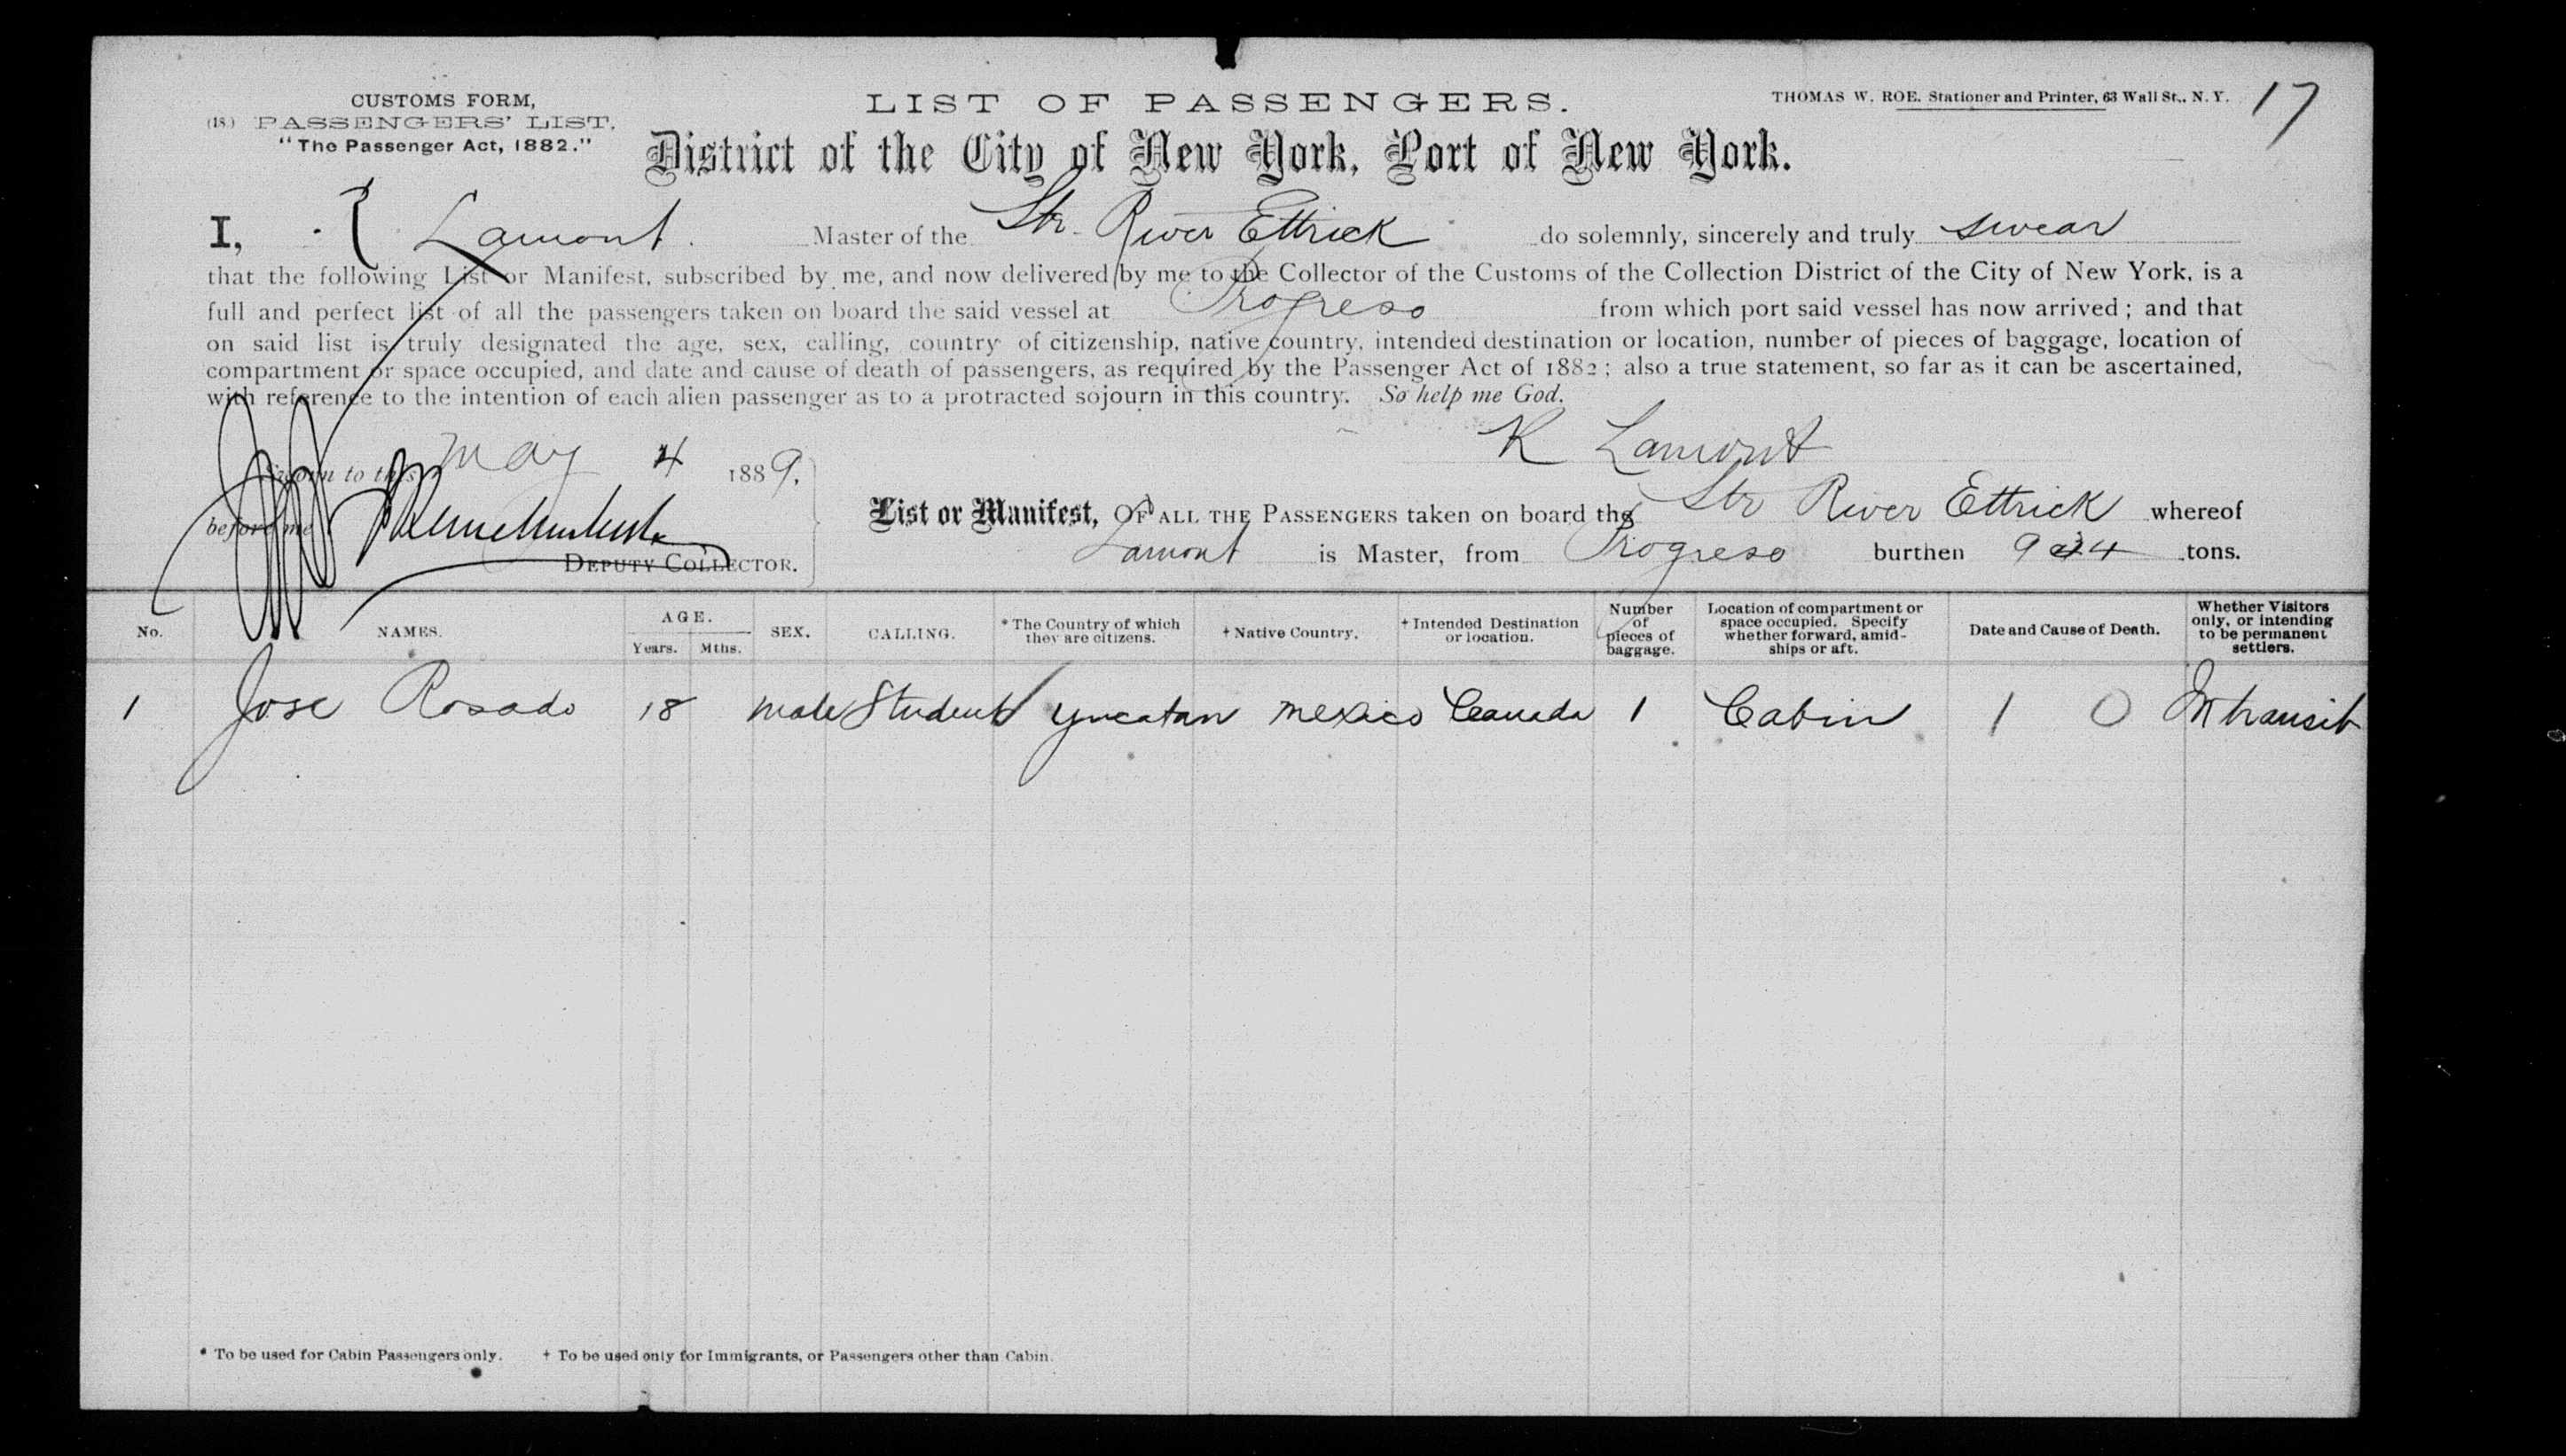 CUSTOMS FORM,
(18.) PASSENGERS' LIST,
"The Passenger Act, 1882."
LIST OF PASSENGERS.
THOMAS W. ROE, Stationer and Printer, 63 Wall St., N. Y.
17
District of the City of New York, Port of New York.
I, Lamont Master of the Str. River Ettrick do solemnly, sincerely and truly swear
that the following List or Manifest, subscribed by me, and now delivered by me to the Collector of the Customs of the Collection District of the City of New York, is a
full and perfect list of all the passengers taken on board the said vessel at Progreso from which port said vessel has now arrived; and that
on said list is truly designated the age, sex, calling, country of citizenship, native country, intended destination or location, number of pieces of baggage, location of
compartment or space occupied, and date and cause of death of passengers, as required by the Passenger Act of 1882; also a true statement, so far as it can be ascertained,
with reference to the intention of each alien passenger as to a protracted sojourn in this country. So help me God.
K Lamont
Sworn to this May 4 1889.
before me
DEPUTY COLLECTOR.
List or Manifest, OF ALL THE PASSENGERS taken on board the Str River Ettrick whereof
Lamont is Master, from Progreso burthen tons.
No. NAMES. AGE. Years. Mths. SEX. CALLING. * The Country of which they are citizens. † Native Country. † Intended Destination or location. Number of pieces of baggage. Location of compartment or space occupied. Specify whether forward, amidships or aft. Date and Cause of Death. Whether Visitors only, or intending to be permanent settlers.
1 Jose Rosado 18 male Student Yucatan Mexico Canada 1 Cabin 1 0 In transit
* To be used for Cabin Passengers only. † To be used only for Immigrants, or Passengers other than Cabin.